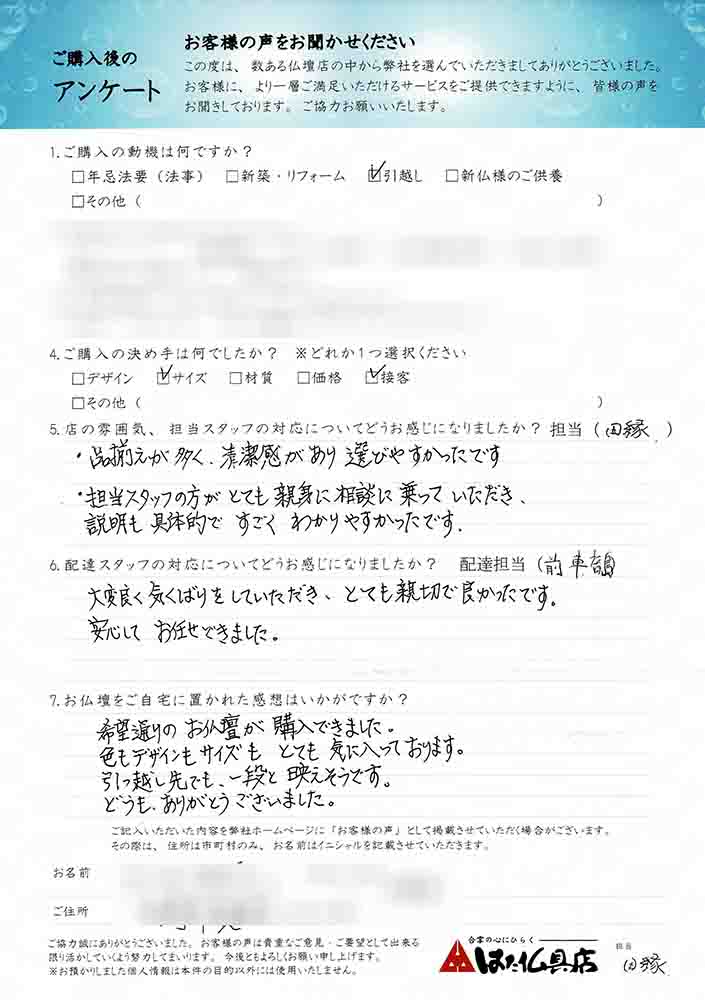 ご購入後の
アンケート
お客様の声をお聞かせください
この度は、数ある仏壇店の中から弊社を選んでいただきましてありがとうございました。
お客様に、より一層ご満足いただけるサービスをご提供できますように、皆様の声を
お聞きしております。ご協力お願いいたします。
1.ご購入の動機は何ですか？
□年忌法要（法事） □新築・リフォーム ☑引越し □新仏様のご供養
□その他（ ）
4.ご購入の決め手は何でしたか？ ※どれか1つ選択ください
□デザイン ☑サイズ □材質 □価格 ☑接客
□その他（ ）
5.店の雰囲気、担当スタッフの対応についてどうお感じになりましたか？ 担当（田縁 ）
・品揃えが多く、清潔感があり 選びやすかったです
・担当スタッフの方が とても 親身に相談に 乗って いただき、
説明も 具体的で すごく わかりやすかったです.
6.配達スタッフの対応についてどうお感じになりましたか？ 配達担当（前
大変良く 気くばりをしていただき、とても親切で良かったです。
安心して お任せできました。
7.お仏壇をご自宅に置かれた感想はいかがですか？
希望通りの お仏壇が 購入できました。
色もデザインもサイズも とても 気に入っております。
引っ越し先でも、一段と 映えそうです。
どうも、ありがとうございました。
ご記入いただいた内容を弊社ホームページに「お客様の声」として掲載させていただく場合がございます。
その際は、住所は市町村のみ、お名前はイニシャルを記載させていただきます。
お名前
ご住所
ご協力誠にありがとうございました。お客様の声は貴重なご意見・ご要望として出来る
限り活かしていくよう努力してまいります。今後ともよろしくお願い申し上げます。
※お預かりしました個人情報は本件の目的以外には使用いたしません。
合掌の心にひらく
はた仏具店
担当
田縁